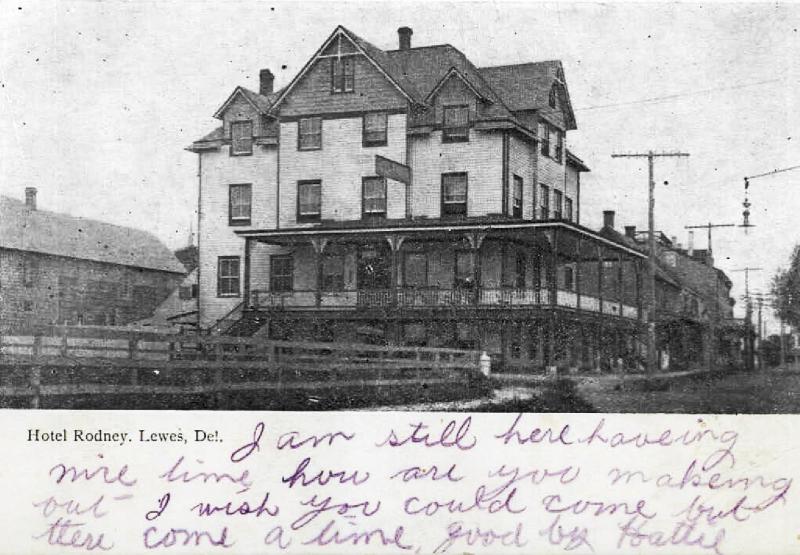 Hotel Rodney. Lewes, Del. I am still here haveing
nire time how are you makeing
out I wish you could come but
there come a time. good by Hattie